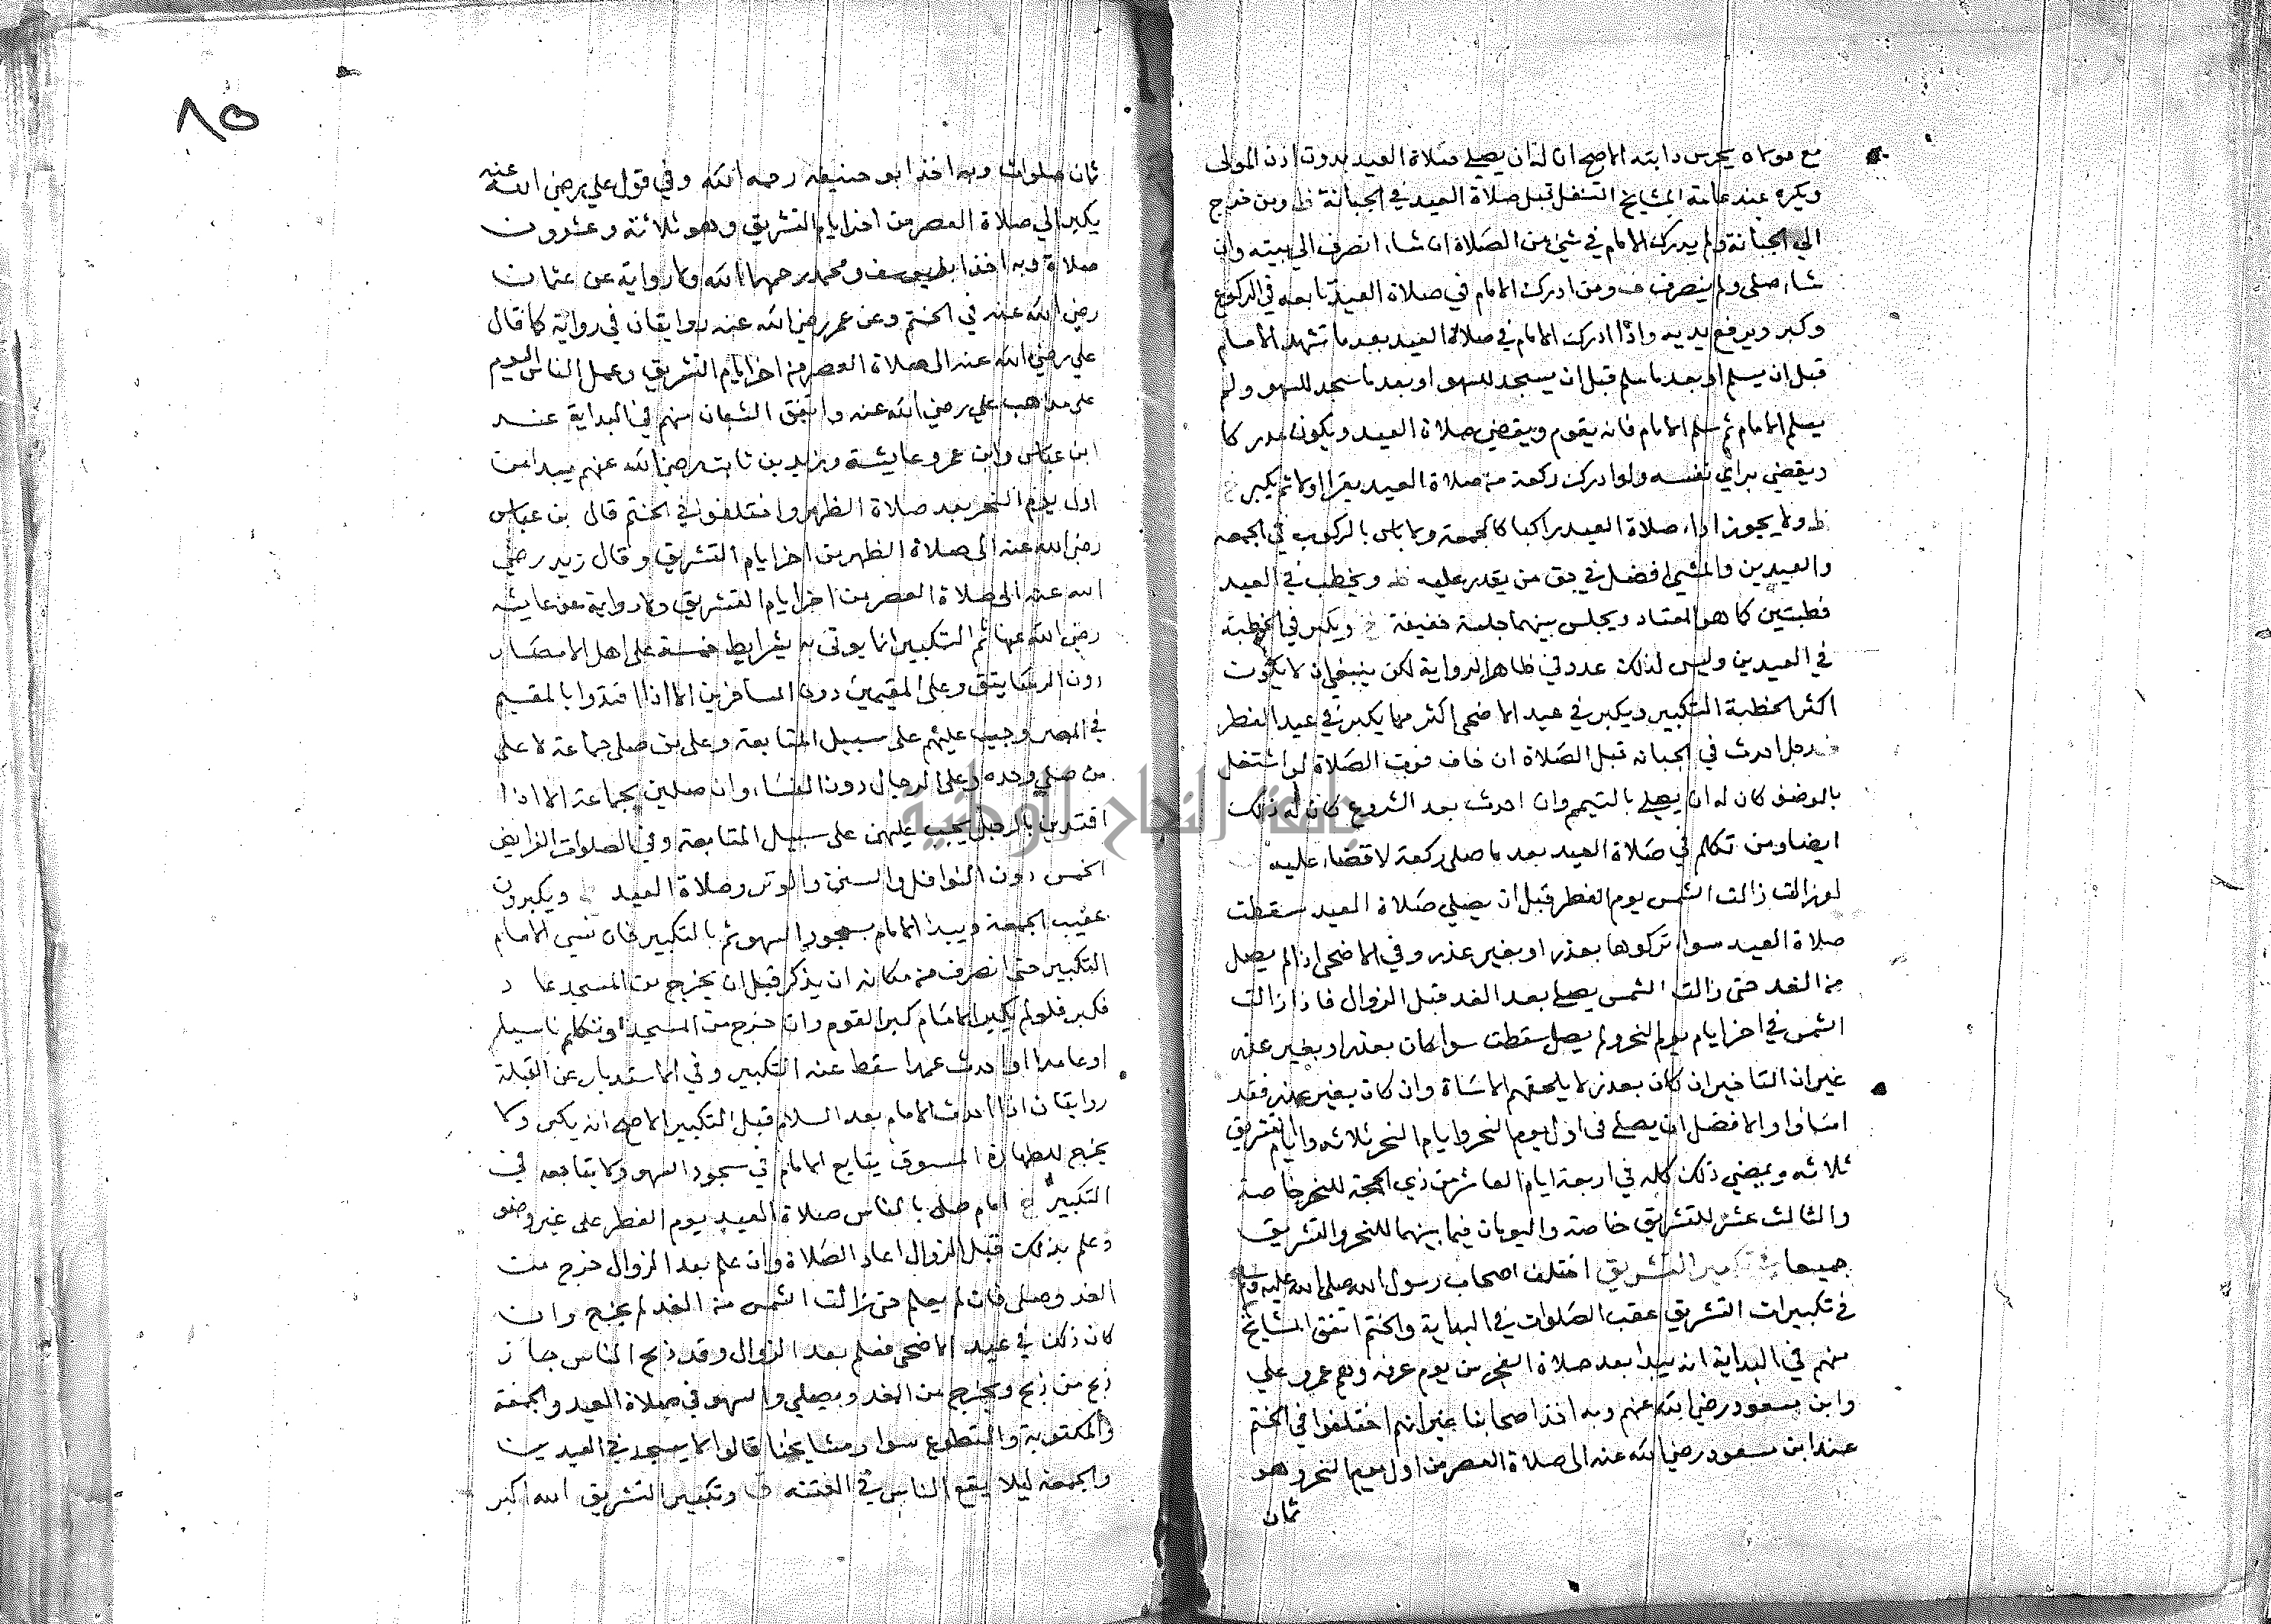 مع مولاه يحرس دابته الاصح ان له ان يصلي صلاة العيد بدون اذن المولى
ويكره عند عامة المشايخ التنفل قبل صلاة العيد في الجبانة ظ ومن خرج
الي الجبانة ولم يدرك الامام في شي من الصلاة ان شاء انصرف الي بيته وان
شاء صلى ولم ينصرف ف ومن ادرك الامام في صلاة العيد تابعه في الركوع
وكبر ويرفع يديه واذا ادرك الامام في صلاة العيد بعد ما تشهد الامام
قبل ان يسلم او بعد ما سلم قبل ان يسجد للسهو او بعد ما سجد للسهو ولم
يسلم الامام ثم سلم الامام فانه يقوم ويقضي صلاة العيد ويكون مدركا
ويقضي براي نفسه ولو ادرك ركعة من صلاة العيد يقرا اولا ثم يكبر خ
ظ ولا يجوز اداء صلاة العيد راكبا كالجمعة ولا باس بالركوب في الجمعه
والعيدين والمشي افضل في حق من يقدر عليه ظ ويخطب في العيد
خطبتين كما هو المعتاد ويجلس بينهما جلسة خفيفة خ ويكبر في الخطبة
في العيدين وليس لذلك عدد في ظاهر الرواية لكن ينبغي ان لا يكون
اكثر الخطبة التكبير ويكبر في عيد الاضحى اكثر مما يكبر في عيد الفطر
رجل احدث في الجبانه قبل الصلاة ان خاف فوت الصلاة لو اشتغل
بالوضو كان له ان يصلي بالتيمم وان احدث بعد الشروع كان له ذلك
ايضا ومن تكلم في صلاة العيد بعد ما صلى ركعة لا قضاء عليه
زالت الشمس يوم الفطر قبل ان يصلي صلاة العيد سقطت
صلاة العيد سواء تركوها بعذر او بغير عذر وفي الاضحى اذا لم يصل
من الغد حتى زالت الشمس يصلي بعد الغد قبل الزوال فاذا زالت
الشمس في اخر ايام يوم النحر ولم يصل سقطت سوا كان بعذر او بغير عذر
غير ان التاخير ان كان بعذر لا يلحقهم الاساة وان كان بغير عذر فقد
اساؤا والافضل ان يصلي في اول يوم النحر وايام النحر ثلاثه وايام التشريق
ثلاثه ويمضي ذلك كله في اربعة ايام العاشر من ذي الحجة للنحر خاصة
والثالث عشر للتشريق خاصة واليومان فيما بينهما للنحر والتشريق
جميعا التشريق اختلف اصحاب رسول الله صلى الله عليه وسلم
في تكبيرات التشريق عقب الصلوات في البداية والختم اتفق المشايخ
منهم في البداية انه يبدا بعد صلاة الفجر من يوم عرفه وهم عمر وعلي
وابن مسعود رضي الله عنهم وبه اخذ اصحابنا غير انهم اختلفوا في الختم
عند ابن مسعود رضي الله عنه الى صلاة العصر من اول يوم النحر وهو
ثمان
٨٥
ثمان صلوات وبه اخذ ابو حنيفه رحمه الله وفي قول علي رضي الله عنه
يكبر الي صلاة العصر من اخر ايام التشريق وهو ثلاثة وعشرون
صلاة وبه اخذ ابو يوسف ومحمد رحمهما الله ولا رواية عن عثمان
رضي الله عنه في الختم وعن عمر رضي الله عنه روايتان في رواية كما قال
علي رضي الله عنه الى صلاة العصر من اخر ايام التشريق وعمل الناس اليوم
على مذاهب علي رضي الله عنه واتفق الشبان منهم في البداية عند
ابن عباس وابن عمر وعايشة وزيد بن ثابت رضي الله عنهم يبدا من
اول يوم النحر بعد صلاة الظهر واختلفوا في الختم قال بن عباس
رضي الله عنه الى صلاة الظهر من اخر ايام التشريق وقال زيد رضي
الله عنه الى صلاة العصر من اخر ايام التشريق ولا رواية عن عايشه
رضي الله عنها ثم التكبير انما يوتى به بشرايط خمسة على اهل الامصار
دون الرساتيق وعلى المقيمين دون المسافرين الا اذا اقتدوا بالمقيم
في المصر وجب عليهم على سبيل المتابعة وعلى من صلى جماعة لا على
من صلى وحده وعلى الرجال دون النساء وان صلين بجماعة الا اذا
اقتدين بالرجل يجب عليهن على سبيل المتابعة وفي الصلوات الفرايض
الخمس دون النوافل والسنن والوتر وصلاة العيد ويكبرون
عقيب الجمعة ويبدا الامام بسجود السهو ثم بالتكبير فان نسي الامام
التكبير حتى انصرف من مكانه ان يذكر قبل ان يخرج من المسجد عاد
فكبر فلو لم يكبر الامام كبر القوم وان خرج من المسجد او تكلم ناسيا
او عامدا او احدث عمدا سقط عنه التكبير وفي الاستدبار عن القبلة
روايتان اذا احدث الامام بعد السلام قبل التكبير الاصح انه يكبر ولا
يخرج للطهارة المسبوق يتابع الامام في سجود السهو ولا يتابعه في
التكبير خ امام صلى بالناس صلاة العيد يوم الفطر على غير وضو
وعلم بذلك قبل الزوال اعاد الصلاة وان علم بعد الزوال خرج من
الغد وصلى فان لم يعلم حتى زالت الشمس من الغد لم يخرج وان
كان ذلك في عيد الاضحى فعلم بعد الزوال وقد ذبح الناس جاز
ذبح من ذبح ويخرج من الغد ويصلي والسهو في صلاة العيد والجمعة
والمكتوبة والتطوع سوا ومشايخنا قالوا لا يسجد في العيدين
والجمعة ليلا يقع الناس في الفتنه ف وتكبير التشريق الله اكبر
جامعة النجاح الوطنية